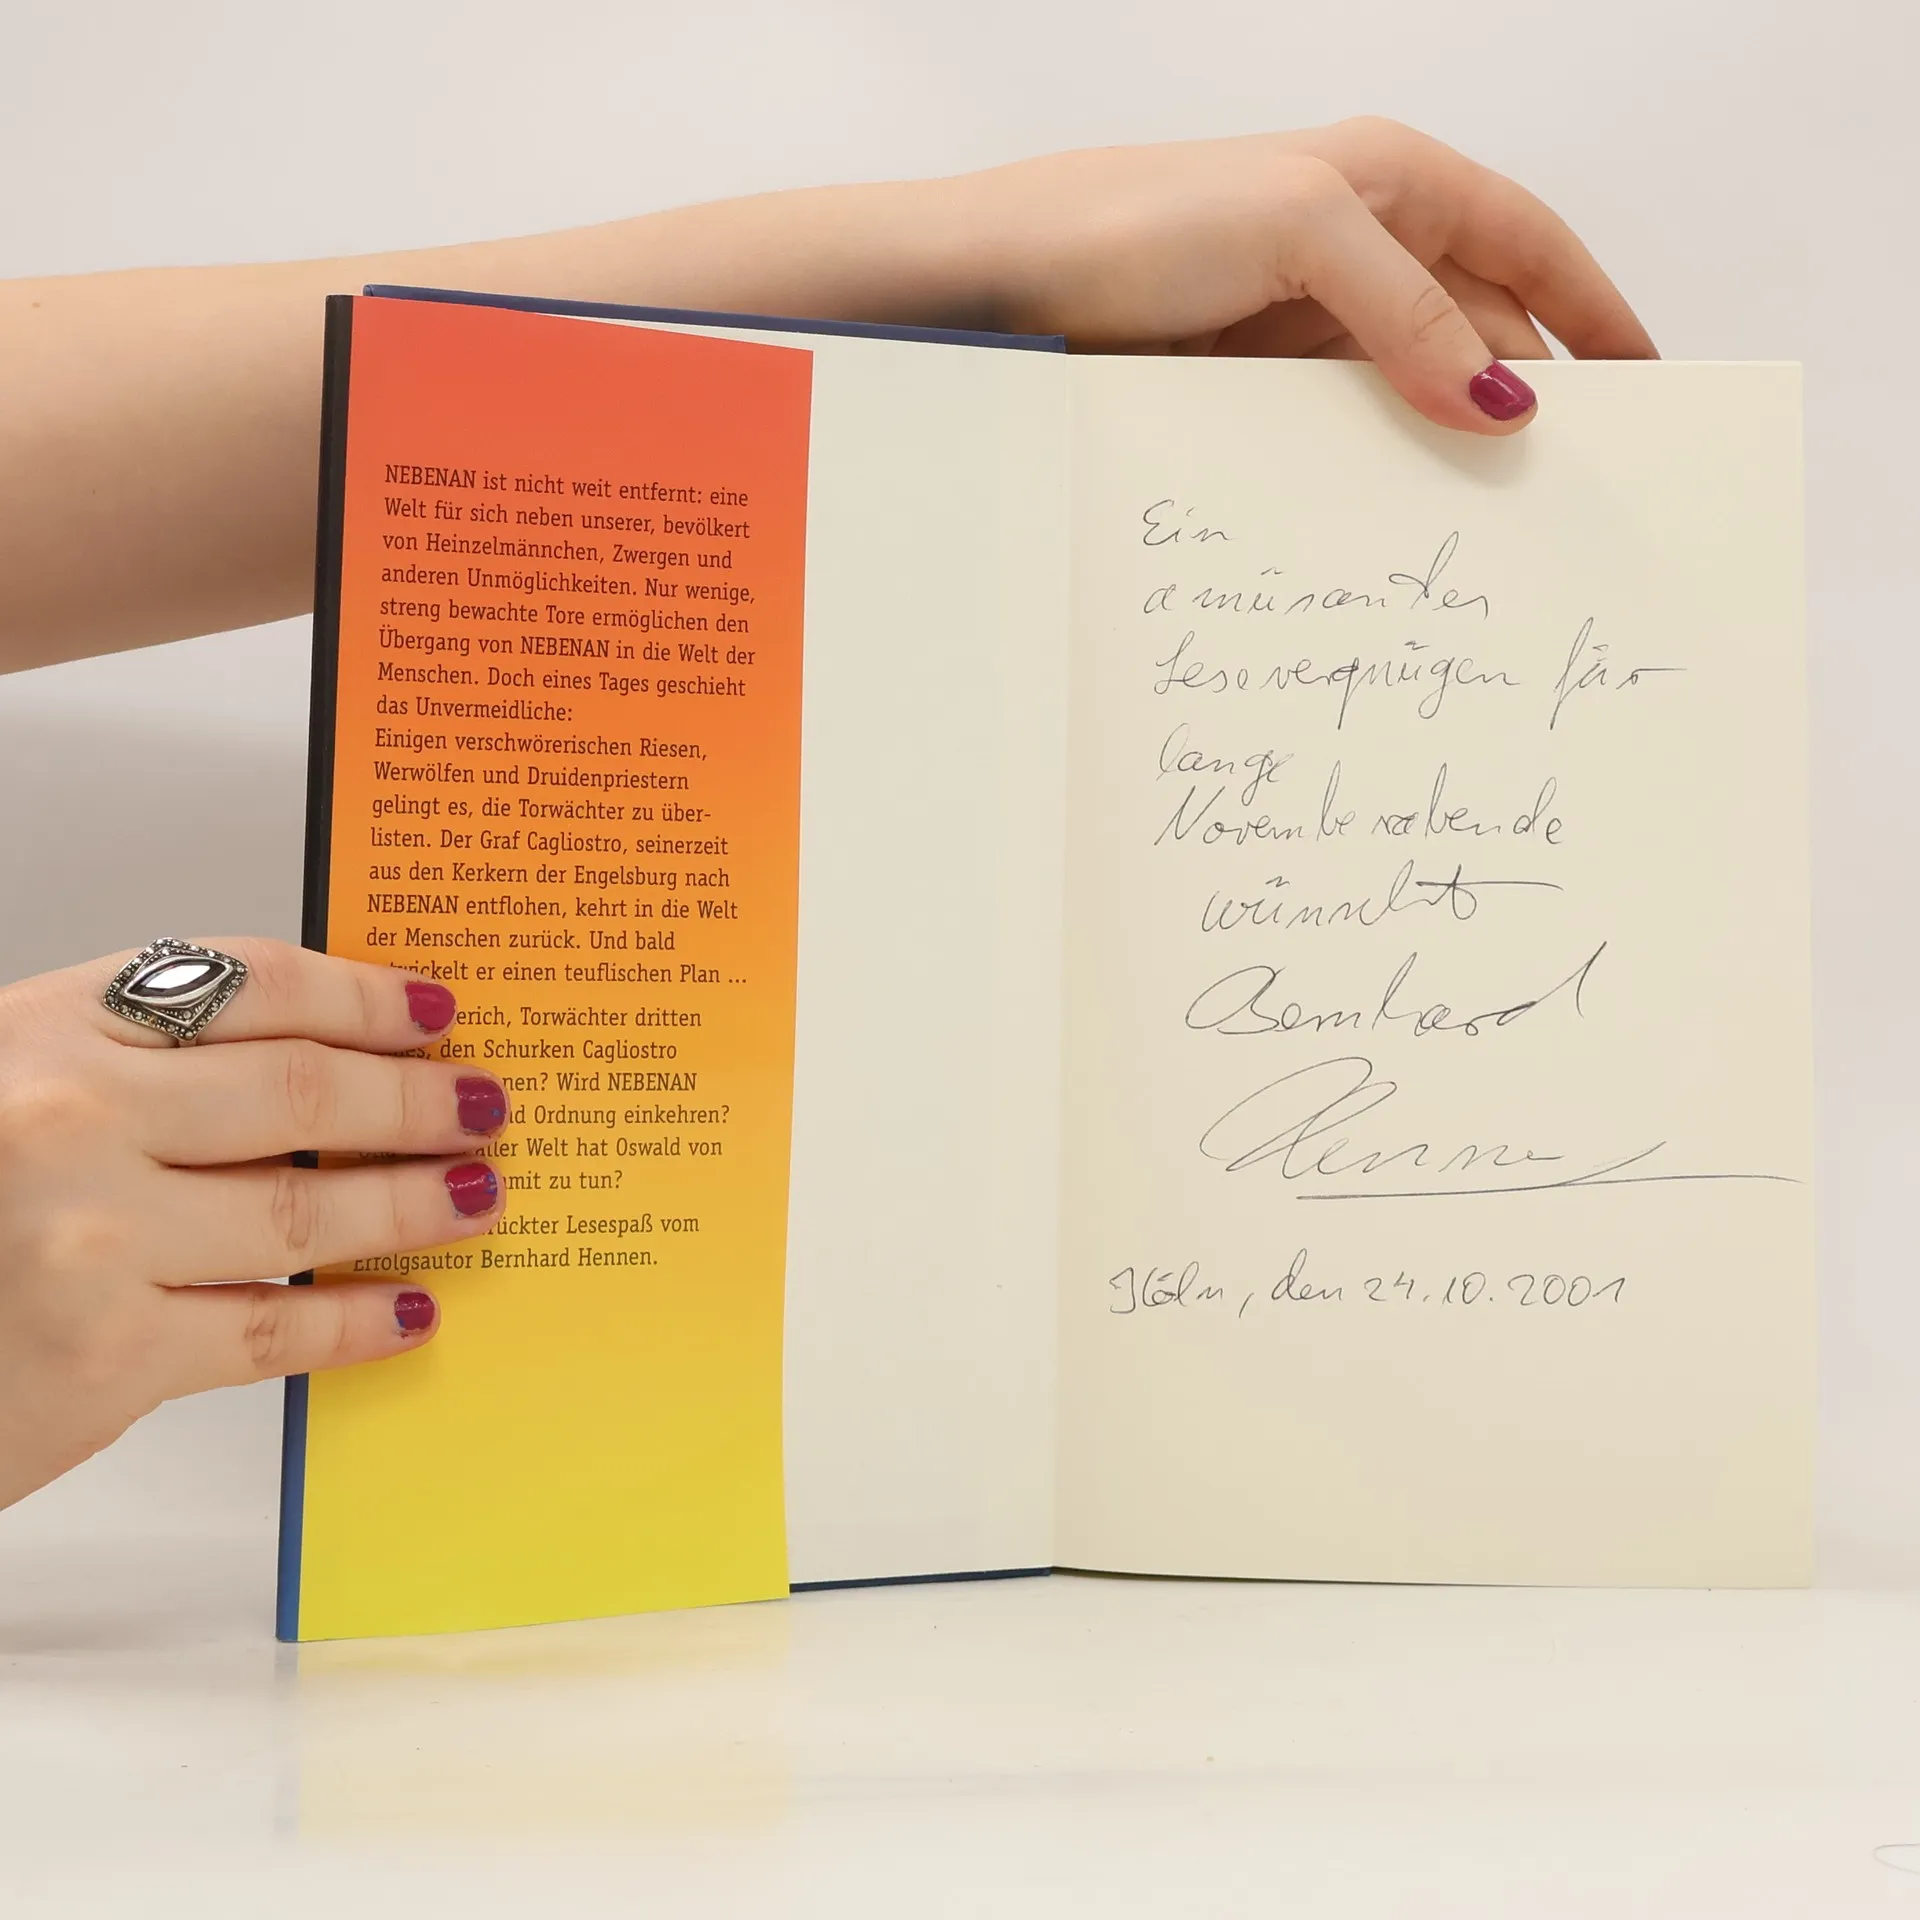 NEBENAN ist nicht weit entfernt: eine
Welt für sich neben unserer, bevölkert
von Heinzelmännchen, Zwergen und
anderen Unmöglichkeiten. Nur wenige,
streng bewachte Tore ermöglichen den
Übergang von NEBENAN in die Welt der
Menschen. Doch eines Tages geschieht
das Unvermeidliche:
Einigen verschwörerischen Riesen,
Werwölfen und Druidenpriestern
gelingt es, die Torwächter zu über-
listen. Der Graf Cagliostro, seinerzeit
aus den Kerkern der Engelsburg nach
NEBENAN entflohen, kehrt in die Welt
der Menschen zurück. Und bald
wickelt er einen teuflischen Plan ...
erich, Torwächter dritten
den Schurken Cagliostro
nen? Wird NEBENAN
nd Ordnung einkehren?
aller Welt hat Oswald von
mit zu tun?
rückter Lesespaß vom
Erfolgsautor Bernhard Hennen.
Ein
amüsantes
Lesevergnügen für
lange
Novemberabende
wünscht
Bernhard
Hennen
Köln, den 24.10.2001